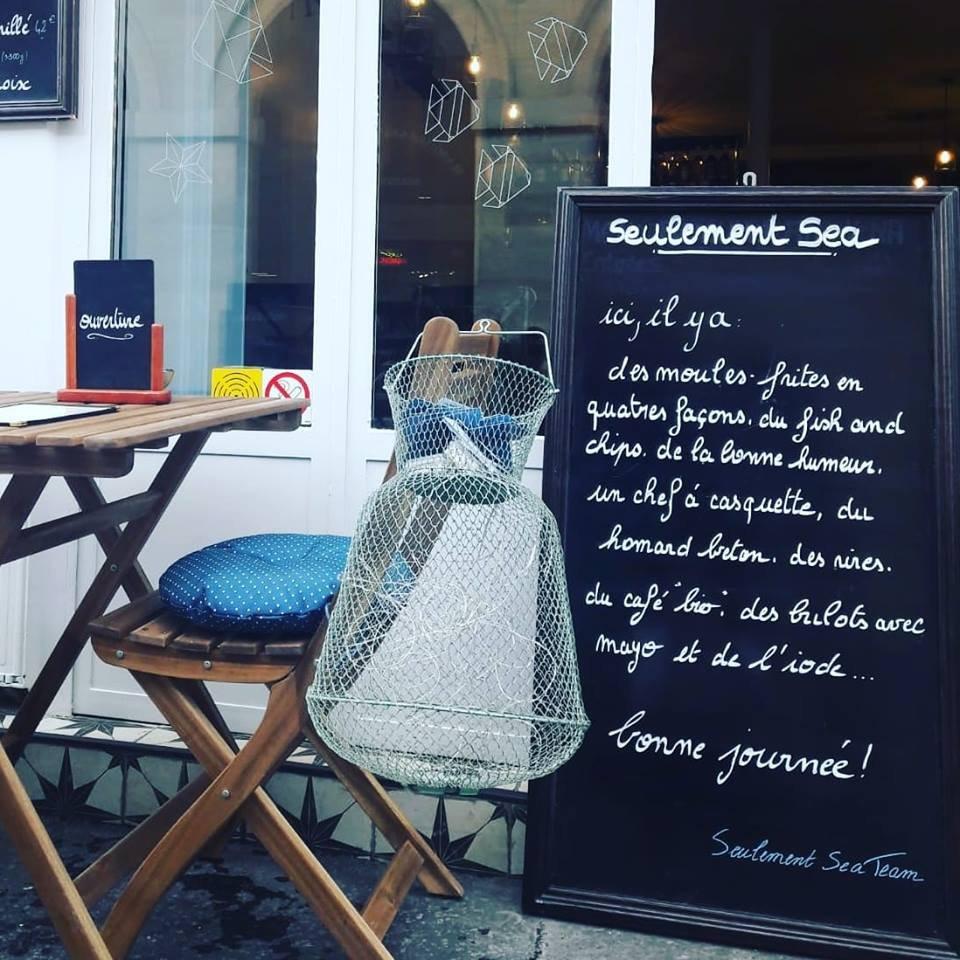 illé 42€
(≈500g)
oix
ouverture
Seulement Sea
ici, il y a :
des moules-frites en
quatres façons. du fish and
chips. de la bonne humeur.
un chef à casquette, du
homard breton. des rires.
du café "bio". des bulots avec
mayo et de l'iode...
bonne journeé !
Seulement Sea Team